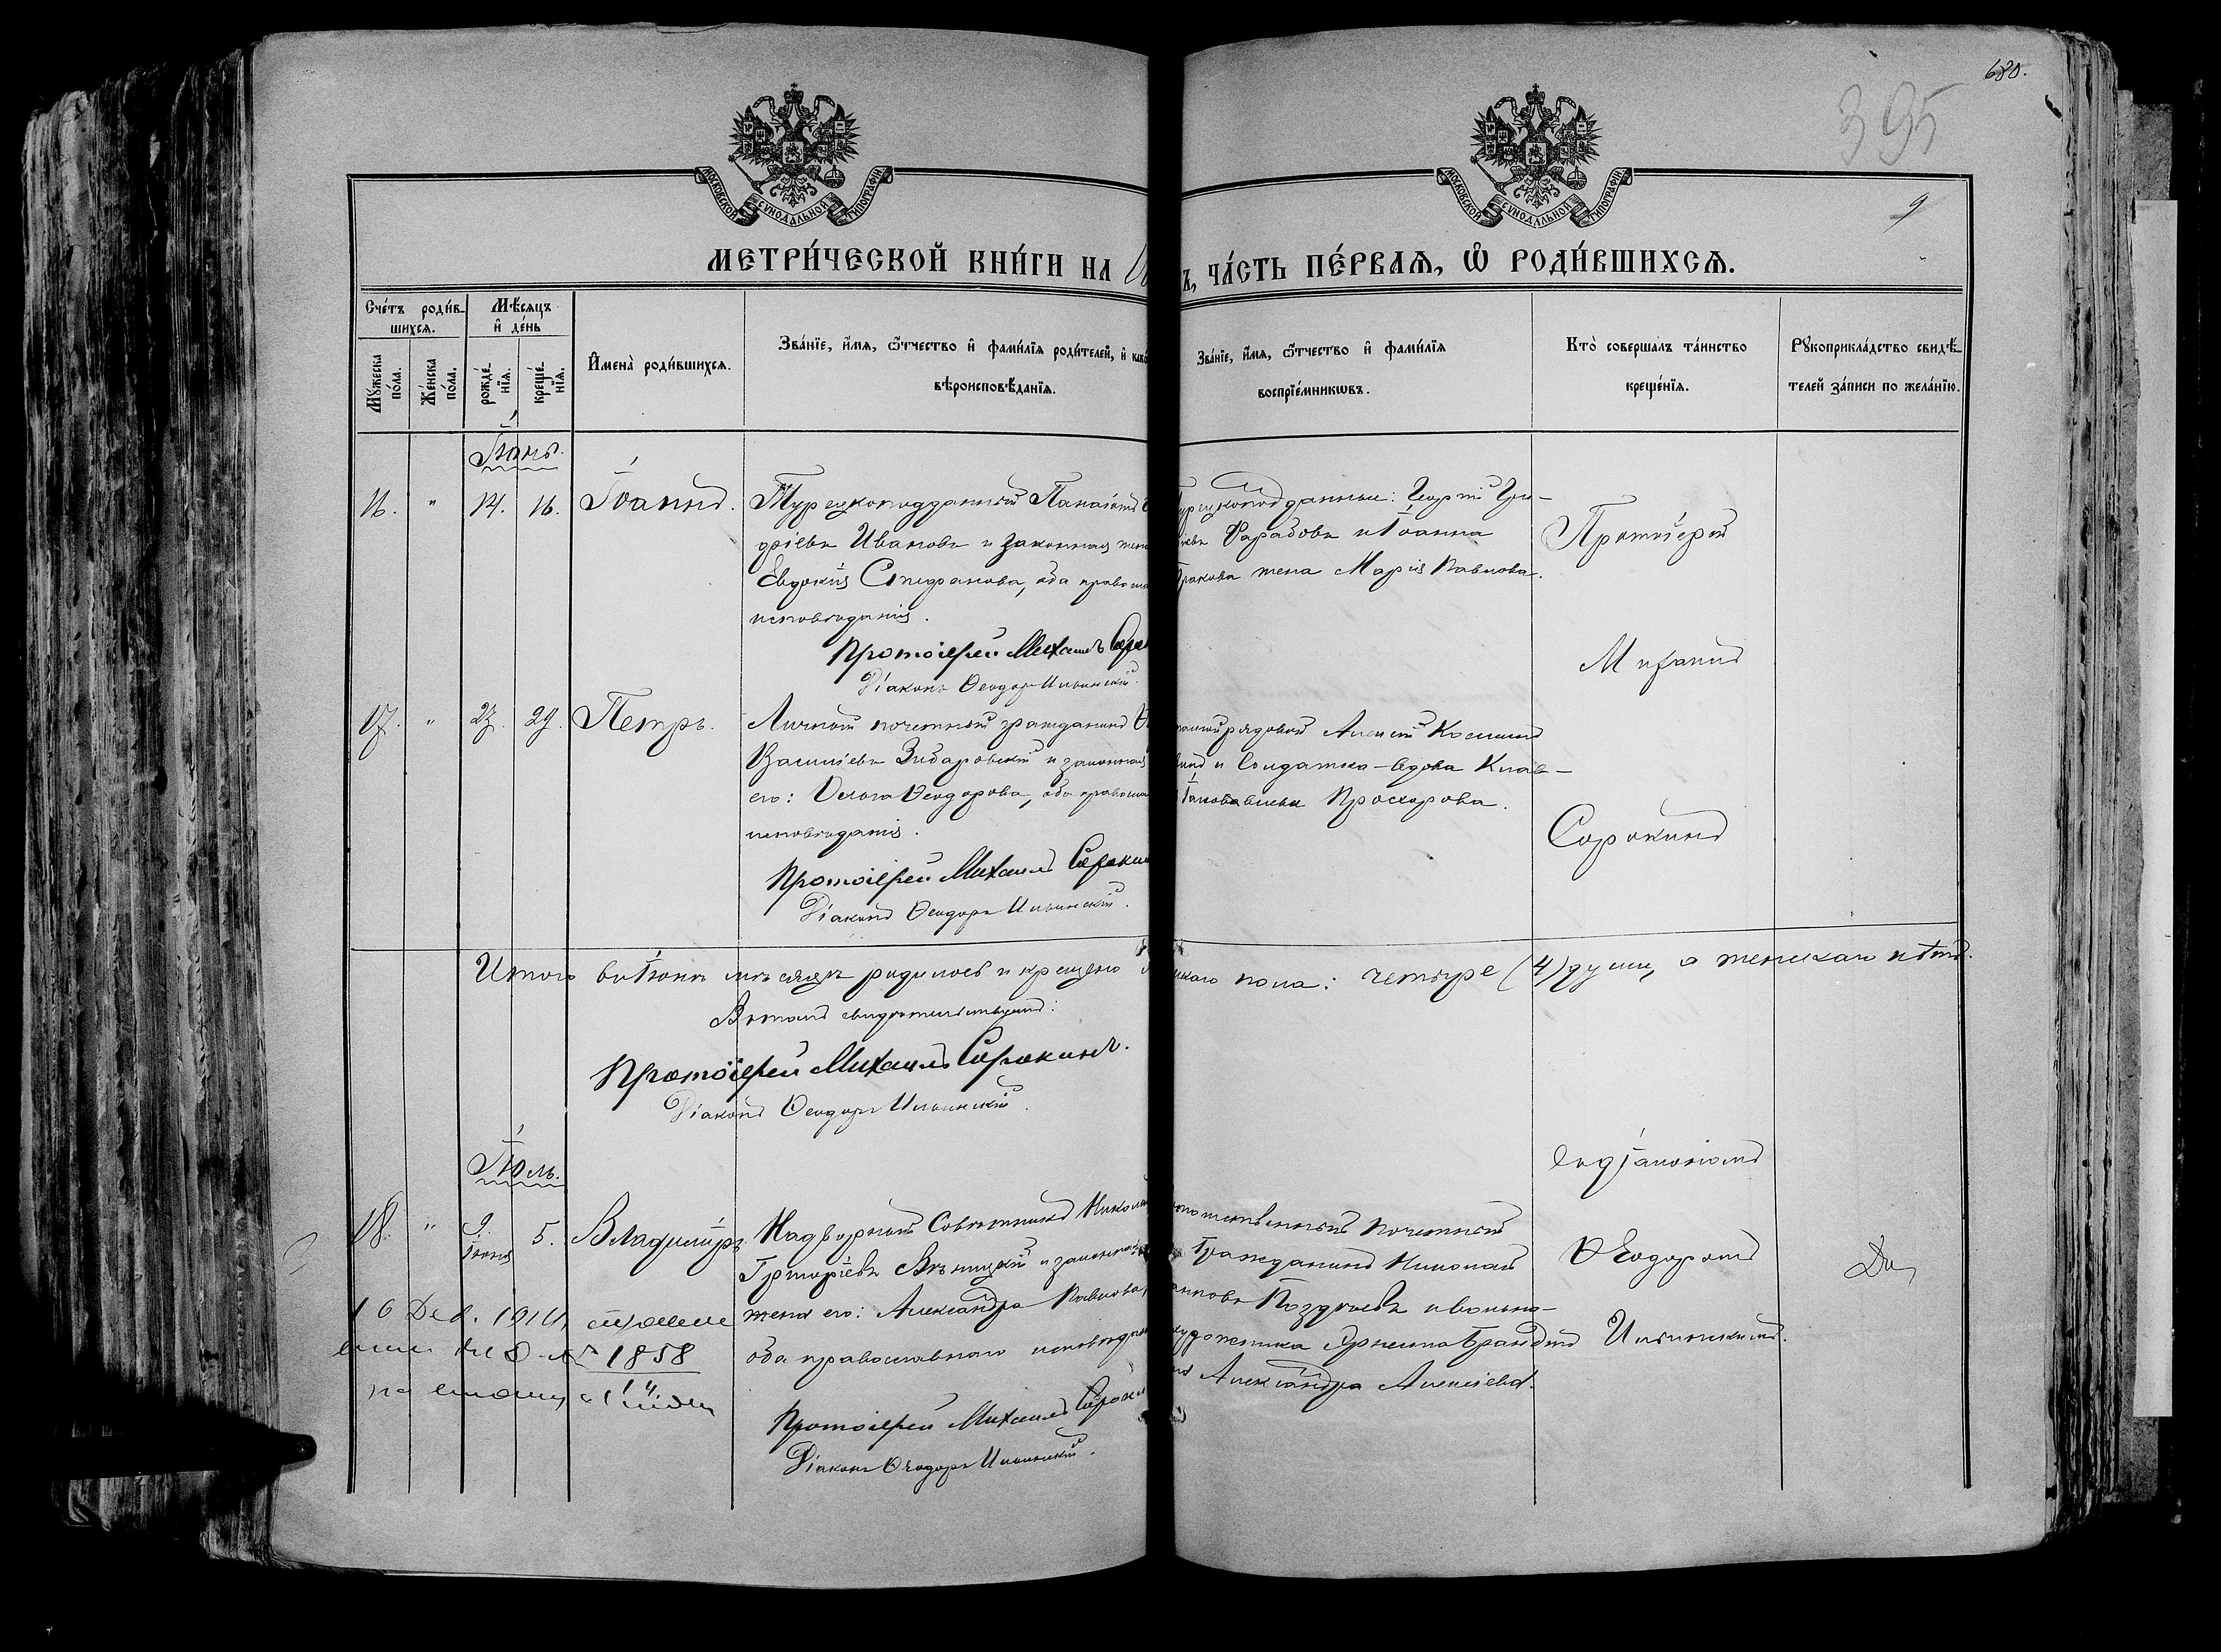 680.
395
9
МОСКОВСКОЙ СУНОДАЛЬНОЙ ТИПОГРАФІИ
МОСКОВСКОЙ СУНОДАЛЬНОЙ ТИПОГРАФІИ
МЕТРИ́ЧЕСКОЙ КНИ́ГИ НА
Ъ, ЧА́СТЬ ПЕ́РВАѦ, Ѡ҆ РОДИ́ВШИХСѦ.
Сче́тъ роди́вшихсѧ.
Мꙋ́жеска по́ла.
Же́нска по́ла.
Мѣ́сѧцъ и҆ де́нь
рожде́нїѧ.
креще́нїѧ.
И҆мена̀ роди́вшихсѧ.
Зва́нїе, и҆́мѧ, ѻ҆́тчество и҆ фами́лїѧ роди́телей, и҆ како
вѣроисповѣ́данїѧ.
Зва́нїе, и҆́мѧ, ѻ҆́тчество и҆ фами́лїѧ
воспрїе́мникѡвъ.
Кто̀ соверша́лъ та́инство
креще́нїѧ.
Рꙋкоприкла́дство свидѣ́телей за́писи по жела́нїю.
Іюнь.
16. " 14. 16. Іоаннъ.
Турецкоподданный Панаіотъ
дріевъ Ивановъ и законная жена
Евдокія Стефанова, оба православ
исповѣданія.
Протоіерей Михаилъ Сорок
Діаконъ Ѳеодоръ Ильинскій.
урецкоподданные: Георгій Гри-
Фарабовъ и Іоанна
жена Марія Павлова.
Протоіерей
Михаилъ
17. " 27. 29. Петръ.
Личный почетный гражданинъ
Василіевъ Зибаровскій и законная
его: Ольга Ѳеодорова, оба православ
исповѣданія.
Протоіерей Михаилъ Сорокин
Діаконъ Ѳеодоръ Ильинскій.
рядовой Алексій Космин
и Солдатка-вдова Клав-
Прохорова.
Сорокинъ
Итого въ Іюнѣ мѣсяцѣ родилось и крещено
скаго пола: четыре (4) души, а женскаго нѣтъ.
Въ томъ свидѣтельствуемъ:
Протоіерей Михаилъ Сорокинъ.
Діаконъ Ѳеодоръ Ильинскій.
Іюль.
18. " 9. Іюня 5. Владиміръ
Надворный Совѣтникъ Никола
Григоріевъ Вѣницкій и законная
жена его: Александра Павлова,
оба православнаго исповѣдан
Протоіерей Михаилъ Сорок
Діаконъ Ѳеодоръ Ильинскій.
Почетный
Гражданинъ Николай
Поздѣевъ и вольно-
художника Эрнеста Брандтъ
Александра Алексіева.
съ діакономъ
Ѳеодоромъ
Ильинскимъ.
16 Дек. 1914
за № 1858